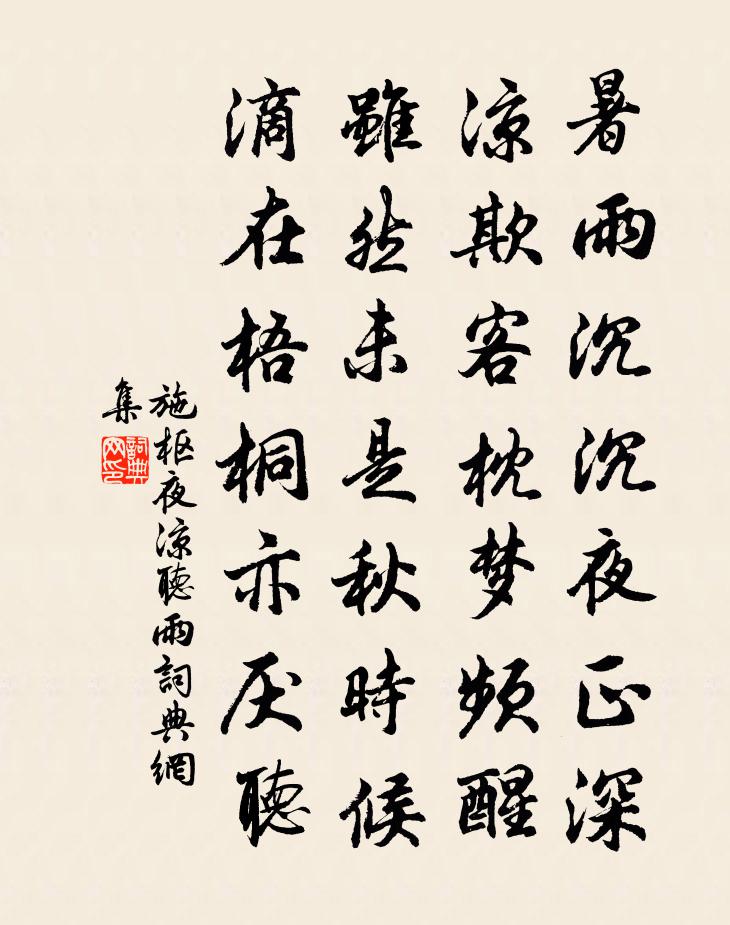 暑雨沉沉夜正深
凉欺客枕梦频醒
雖然未是秋時候
滴在梧桐亦厌聽
施枢夜凉聽雨詞典網
集
詞典
网印